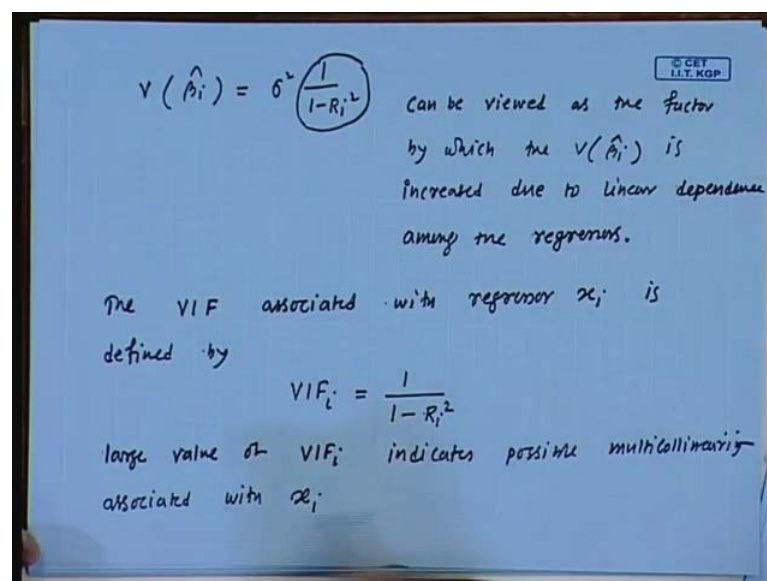 V(β̂i) = σ² 1/(1-Ri²)
© CET
I.I.T. KGP
can be viewed as the factor
by which the V(β̂i) is
increased due to linear dependence
among the regressors.
The VIF associated with regressor xi is
defined by
VIFi = 1/(1-Ri²)
large value of VIFi indicates possible multicollinearity
associated with xi